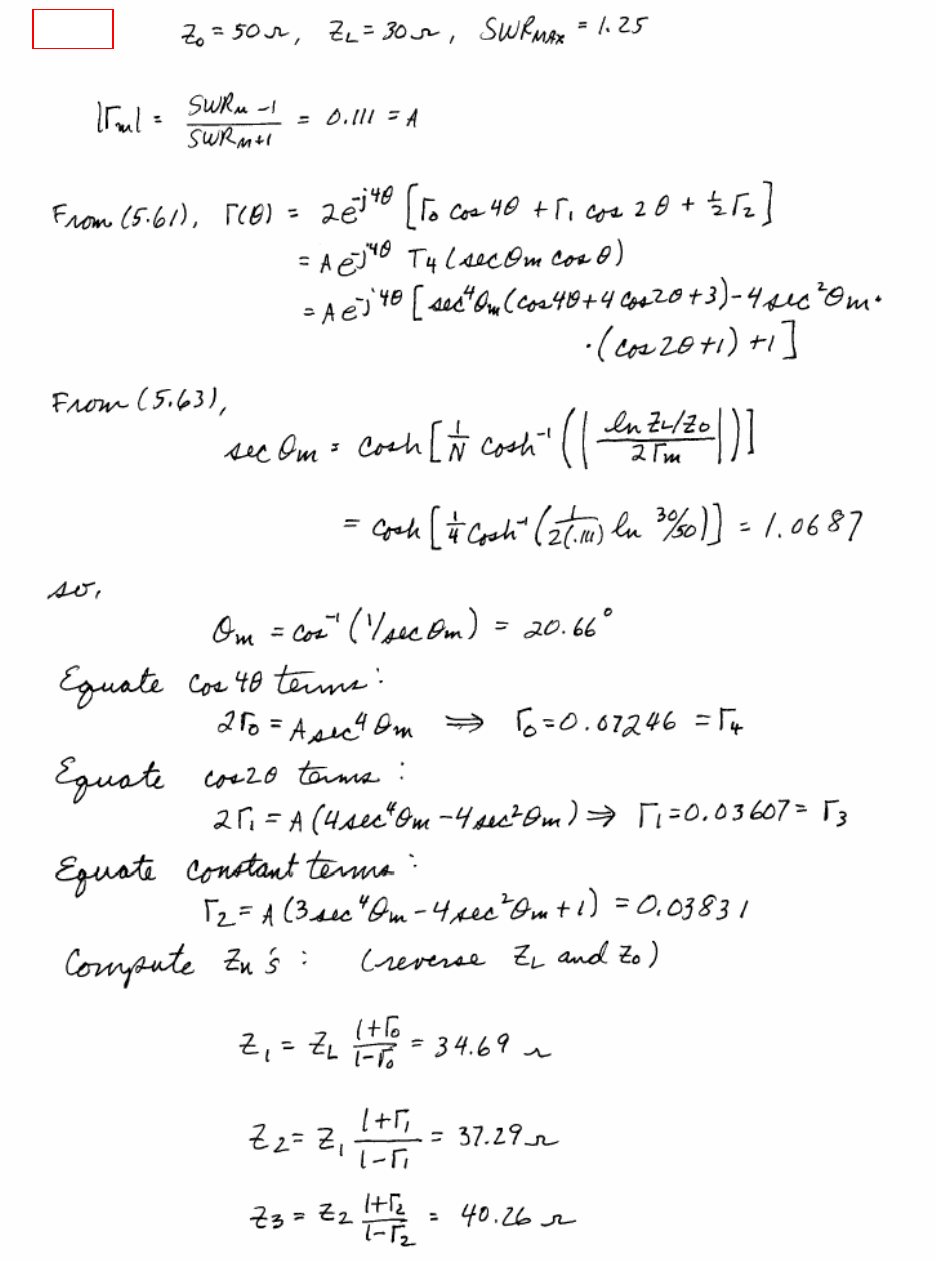 Z₀ = 50Ω, Z_L = 30Ω, SWR_MAX = 1.25
|Γₘ| = (SWR_M − 1)/(SWR_M + 1) = 0.111 = A
From (5.61), Γ(θ) = 2e^(-j4θ) [Γ₀ cos 4θ + Γ₁ cos 2θ + ½Γ₂]
= A e^(-j4θ) T₄ (sec θm cos θ)
= A e^(-j4θ) [sec⁴θm (cos4θ + 4 cos2θ + 3) − 4 sec²θm ·
· (cos 2θ + 1) + 1]
From (5.63),
sec θm = cosh [1/N cosh⁻¹ (| ln Z_L/Z₀ / 2Γm |)]
= cosh [1/4 cosh⁻¹ (1/2(.111) ln 30/50)] = 1.0687
so,
θm = cos⁻¹ (1/sec θm) = 20.66°
Equate cos 4θ terms:
2Γ₀ = A sec⁴ θm ⟹ Γ₀ = 0.07246 = Γ₄
Equate cos2θ terms:
2Γ₁ = A (4 sec⁴θm − 4 sec²θm) ⇒ Γ₁ = 0.03607 = Γ₃
Equate constant terms:
Γ₂ = A (3 sec⁴θm − 4 sec²θm + 1) = 0.03831
Compute Zn's : (reverse Z_L and Z₀)
Z₁ = Z_L (1+Γ₀)/(1−Γ₀) = 34.69 Ω
Z₂ = Z₁ (1+Γ₁)/(1−Γ₁) = 37.29 Ω
Z₃ = Z₂ (1+Γ₂)/(1−Γ₂) = 40.26 Ω